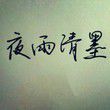 夜雨清墨